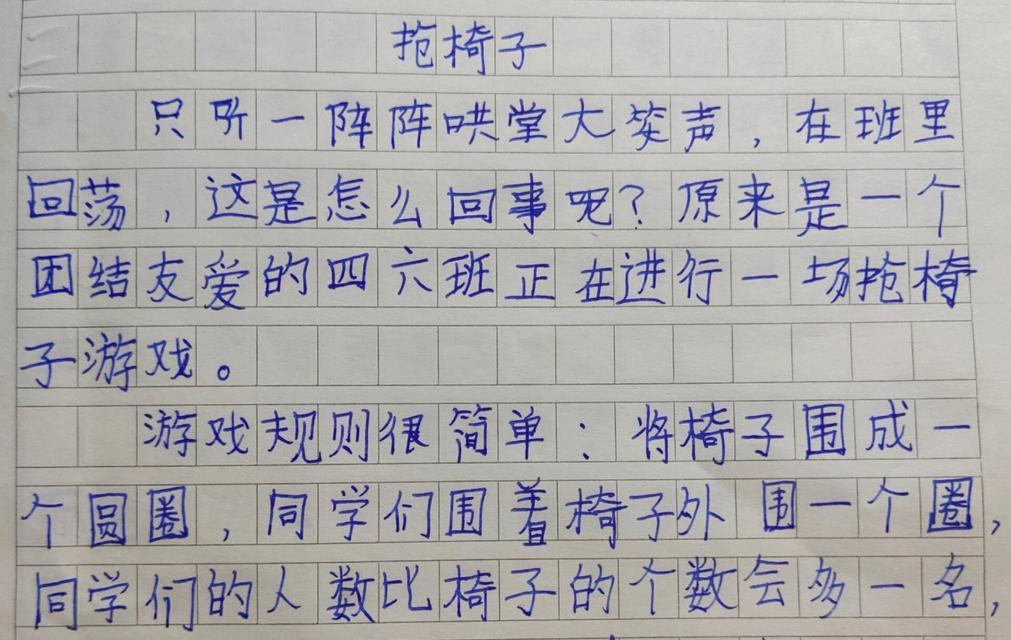 抢椅子
只听一阵阵哄堂大笑声，在班里
回荡，这是怎么回事呢？原来是一个
团结友爱的四六班正在进行一场抢椅
子游戏。
游戏规则很简单：将椅子围成一
个圆圈，同学们围着椅子外围一个圈，
同学们的人数比椅子的个数会多一名，